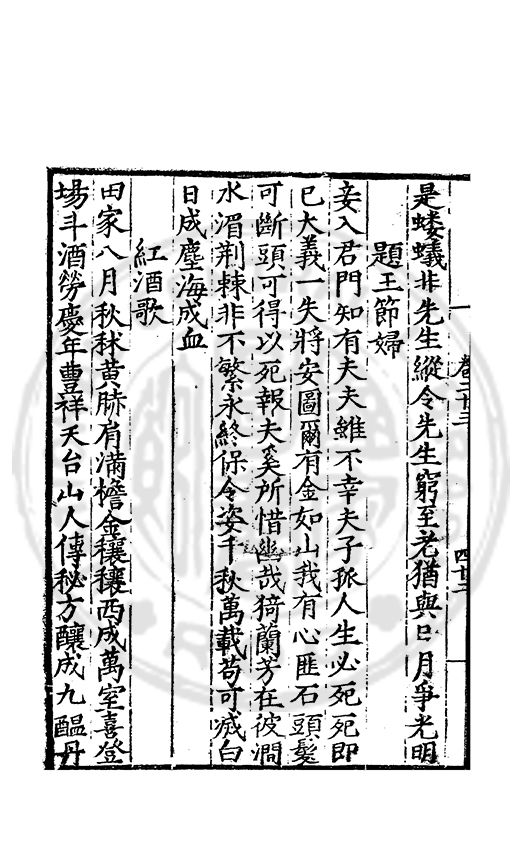 卷二十三　四十二
是蝼蟻非先生縱令先生窮至老猶與日月爭光明
題王節婦
妾入君門知有夫夫維不幸夫子孤人生必死死即
已大義一失將安圖爾有金如山我有心匪石頭髮
可斷頭可得以死報夫奚所惜幽哉猗蘭芳在彼澗
水湄荆棘非不繁永終保令姿千秋萬載苟可滅白
日成塵海成血
紅酒歌
田家八月秋秫黃胏肩滿檐金穰穰西成萬室喜登
場斗酒勞慶年豐祥天台山人傳秘方釀成九醞丹